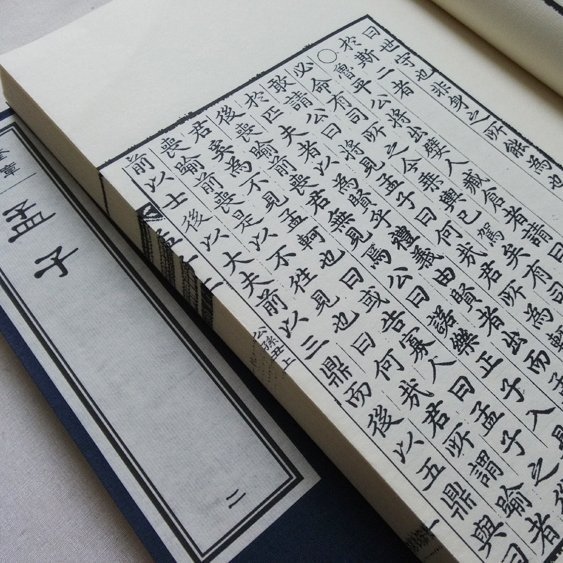 曰世守也非身之所能為也
於斯二者
○魯平公將出嬖人臧倉者請
必命有司所之今乘輿已駕矣有司
敢請公曰將見孟子曰何哉君所為
於匹夫者以為賢乎禮義由賢者出而
後喪踰前喪君無見焉公曰諾樂正子入見
君奚為不見孟軻也曰或告寡人曰孟子之
喪踰前喪是以不往見也曰何哉君所謂踰者
前以士後以大夫前以三鼎而後以五鼎與
公孫丑上
孟子
二